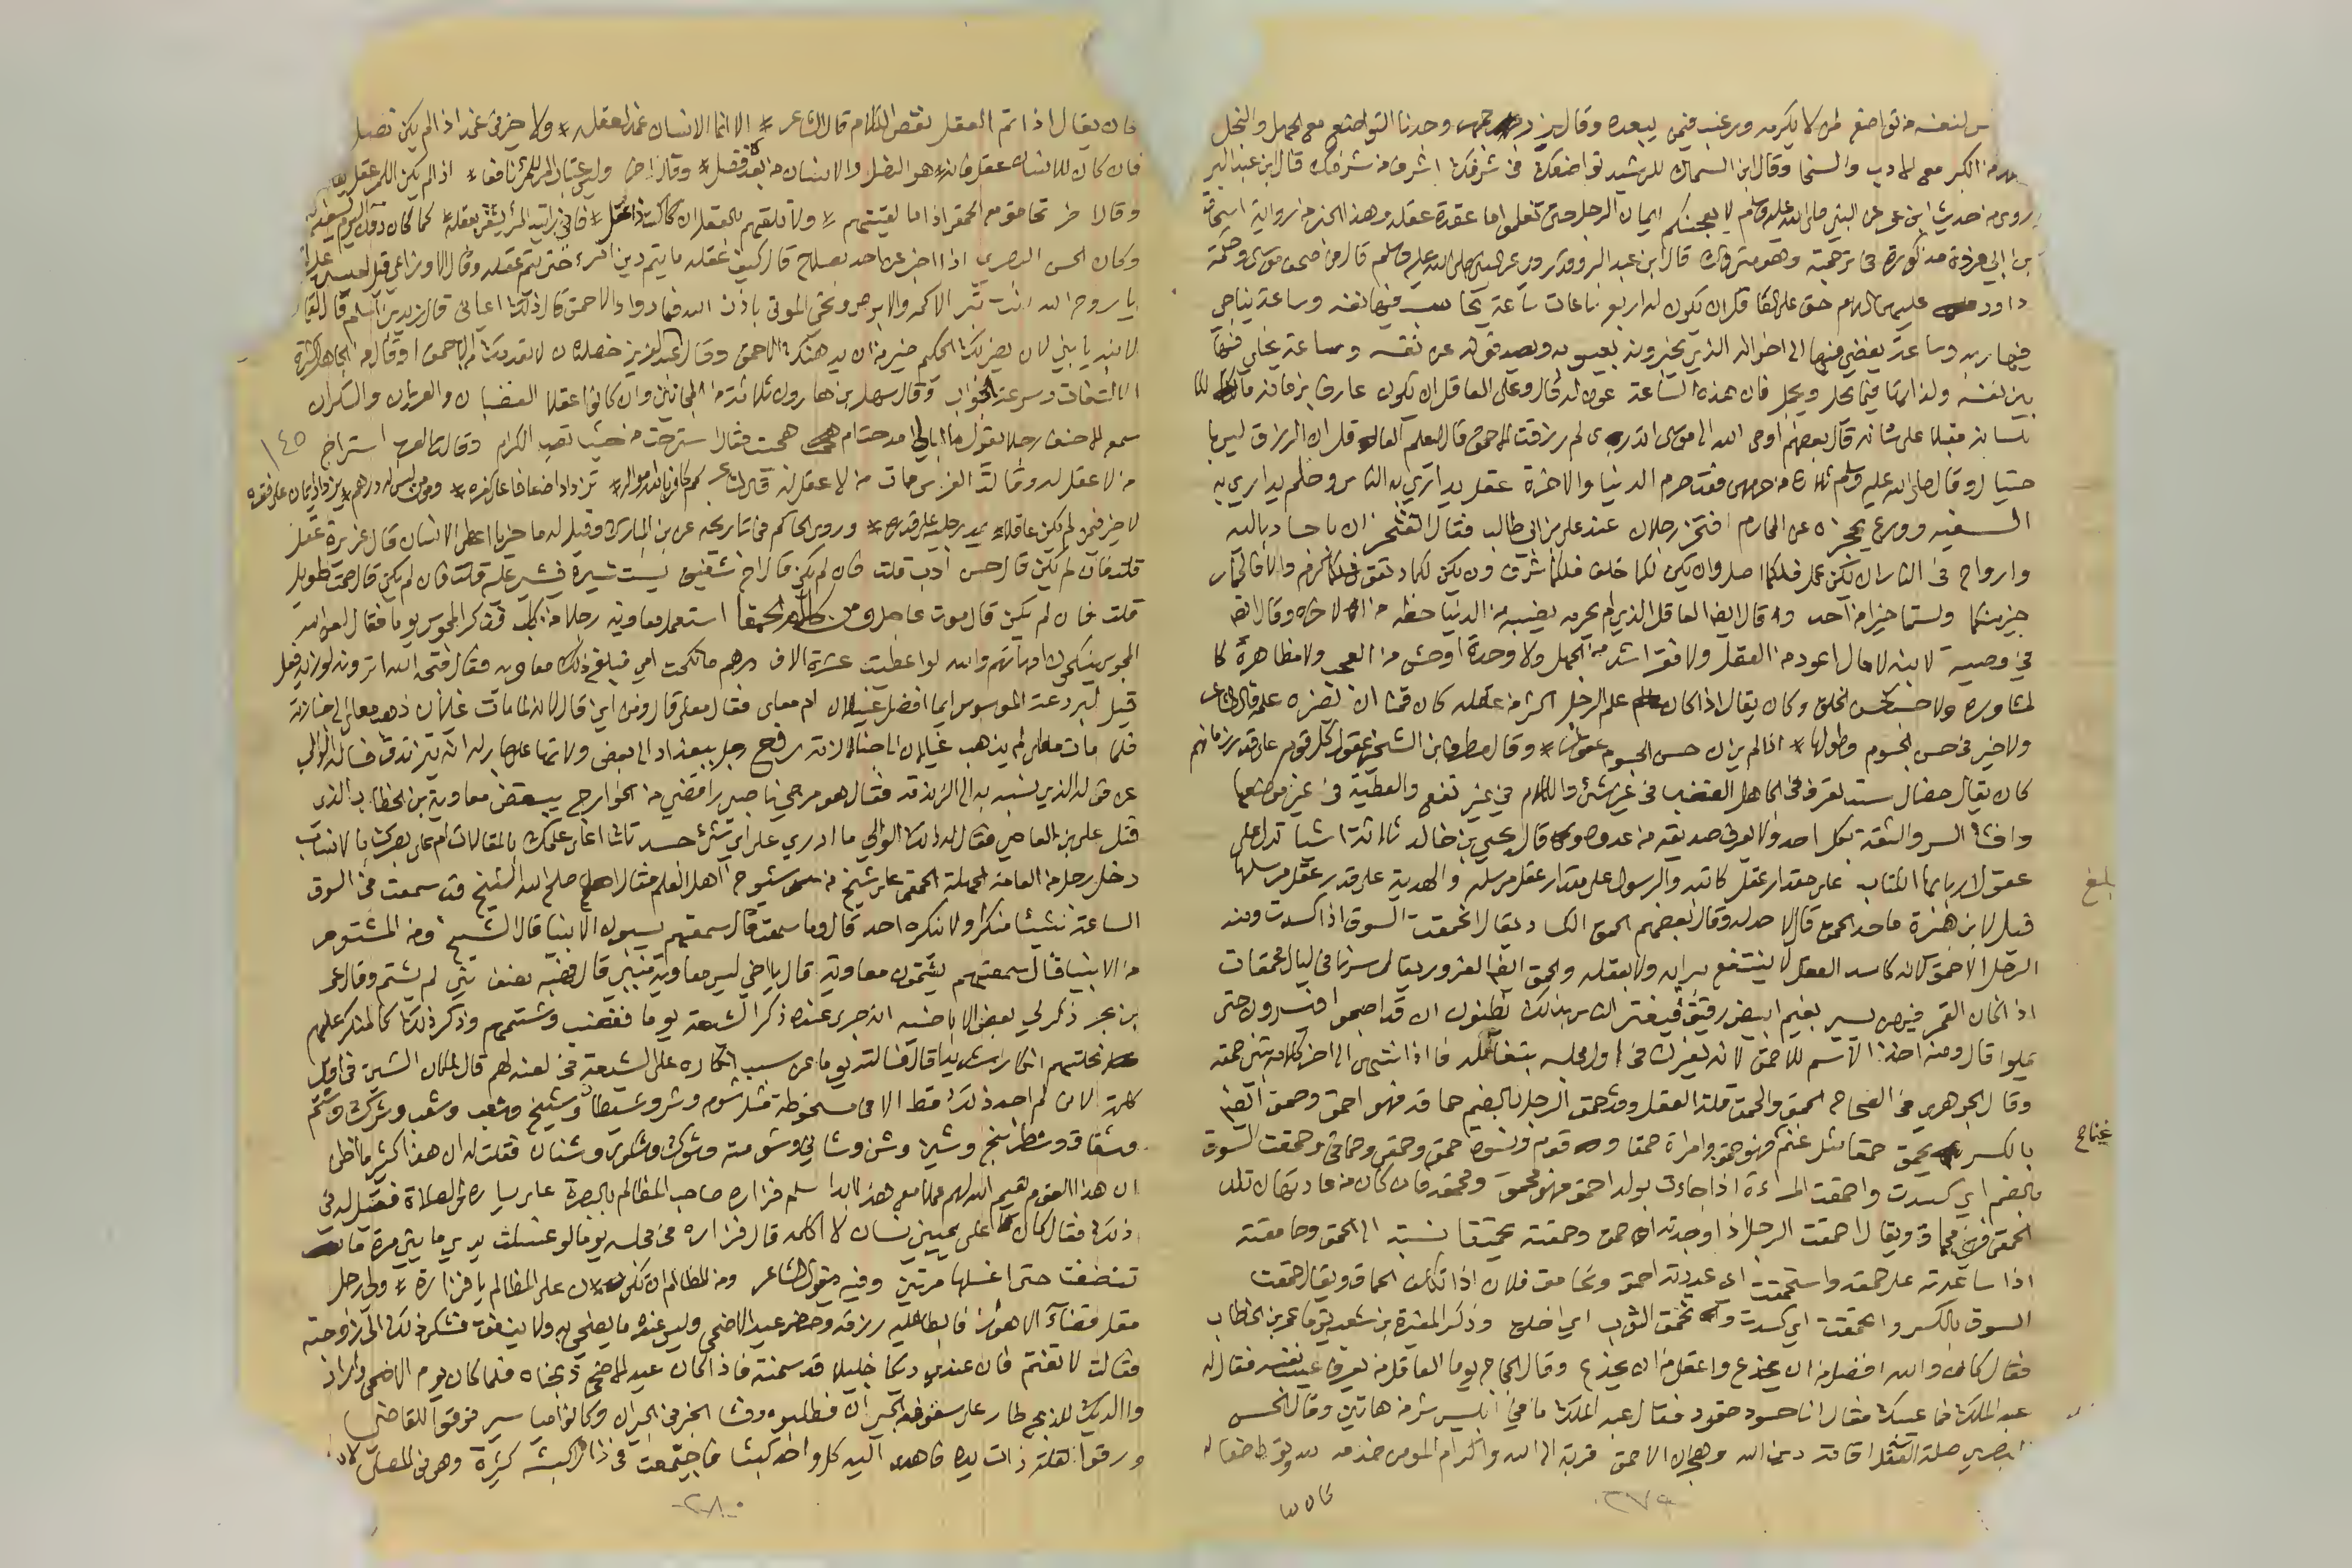 لنفسه من تواضع لمن لا يكرمه ورغب فيمن يبعده وقال وجدنا التواضع مع الجهل والبخل
من الكبر مع الادب والسخا وقال ابن السماك للرشيد تواضعك في شرفك اشرف من شرفك قال ابن عبد البر
روى من حديث ابن عمر عن النبي صلى الله عليه وسلم لا يعجبنكم ايمان الرجل حتى تعلموا ما عقدة عقله وهذا الخبر من رواية اسحاق
بن ابي فروة مذكورة في ترجمته وهو متروك قال ابن عبد البر وقد روي عن النبي صلى الله عليه وسلم قال من صحف موسى وحكمة
داود عليهما السلام حق على العاقل ان يكون له اربع ساعات ساعة يحاسب فيها نفسه وساعة يناجي
فيها ربه وساعة يفضي فيها الى اخوانه الذين يخبرونه بعيوبه ويصدقونه عن نفسه وساعة يخلي فيها
بين نفسه ولذاتها فيما يحل ويجمل فان هذه الساعة عون له قال وعلى العاقل ان يكون عارفا بزمانه مالكا
للسانه مقبلا على شانه قال بعضهم اوحى الله الى موسى اتدري لم رزقت الاحمق قال ليعلم العاقل ان الرزق ليس با
حتيال وقال صلى الله عليه وسلم ثلاث من حرمهن فقد حرم الدنيا والاخرة عقل يداري به الناس وحلم يداري به
السفيه وورع يحجزه عن المحارم افتخر رجلان عند علي بن ابي طالب فقال اتفتخران باجساد بالية
وارواح في النار ان يكن عمل فلكما اصل وان يكن لكما خلق فلكما شرف وان يكن لكما تقوى فلكما كرم والا فالحمار
خير منكما ولستما خيرا من احد وقال ايضا العاقل الذي لم يحرمه نصيبه من الدنيا حظه من الاخرة وقال ايضا
في وصيته لابنه لا مال اعود من العقل ولا فقر اشد من الجهل ولا وحدة اوحش من العجب ولا مظاهرة كا
لمشاورة ولا حسب كحسن الخلق وكان يقال اذا كان علم الرجل اكثر من عقله كان قمنا ان يضره علمه قال الشاعر
ولا خير في حسن الجسوم وطولها * اذا لم يزن حسن الجسوم عقول * وقال مطرف بن الشخير عقول كل قوم على قدر زمانهم
كان يقال خصال ست تعرف في الجاهل الغضب في غير شيء والكلام في غير نفع والعطية في غير موضعها
وافشا السر والثقة بكل احد ولا يعرف صديقه من عدوه وقال يحيى بن خالد ثلاثة اشيا تدل على
عقول اربابها الكتاب على مقدار عقل كاتبه والرسول على مقدار عقل مرسله والهدية على قدر عقل مرسلها
قيل لابن هبيرة ما حد الحمق قال لا حد له وقال بعضهم الحمق الكساد يقال انحمقت السوق اذا كسدت ومنه
الرجل الاحمق لانه كاسد العقل لا ينتفع برايه ولا بعقله والحمق ايضا الغرور يقال سرنا في ليال محمقات
اذا كان القمر فيهن يسير بغيم ابيض رقيق فيغتر الناس بذلك يظنون ان قد اصبحوا فيسيرون حتى
يملوا قال ومنه اخذ الاسم للاحمق لانه يغرك في اول مجلسه بتعاقله فاذا انتهى الى اخر كلامه تبين حمقه
وقال الجوهري في الصحاح الحمق والحمق قلة العقل وقد حمق الرجل بالضم حماقة فهو احمق وحمق ايضا
بالكسر يحمق حمقا مثل غنم فهو حمق وامراة حمقا وقوم ونسوة حمق وحمقى وحماقى وحمقت السوق
بالضم اي كسدت واحمقت المراءة اذا جاءت بولد احمق فهو محمق ومحمقة فان كان من عادتها ان تلد
الحمقى فهي محماق ويقال احمقت الرجل اذا وجدته احمق وحمقته تحميقا نسبته الى الحمق وحامقته
اذا ساعدته على حمقه واستحمقته اي عددته احمق وتحامق فلان اذا تكلف الحماقة ويقال حمقت
السوق بالكسر وانحمقت اي كسدت وانحمق الثوب اي اخلق وذكر المغيرة بن شعبة يوما عمر بن الخطاب
فقال كان والله افضل من ان يخدع واعقل من ان يخدع وقال الحجاج يوما العاقل من يعرف عيب نفسه فقال له
عبد الملك فما عيبك فقال انا حسود حقود فقال عبد الملك ما في ابليس شر من هاتين وقال الحسن
البصري صلة العاقل اقامة دين الله وهجران الاحمق قربة الى الله واكرام المومن خدمة لله وتواضع له
كان يقا
٢٧٩
بلغ
فان يقال اذا تم العقل نقص الكلام قال الشاعر * الا انما الانسان غمد لعقله * ولا خير في غمد اذا لم يكن نصل
فان كان للانسان عقل فانه * هو النصل والانسان من بعد فضل * وقال اخر وليس عتاب المرء للمرء نافعا * اذا لم يكن للمرء عقل يعاتبه
وقال اخر تحامق مع الحمقى اذا ما لقيتهم * ولا تلقهم بالعقل ان كنت ذا عقل * فاني رايت المرء يشقى بعقله * كما كان قبل اليوم يسعد
وكان الحسن البصري اذا اخبر عن احد بصلاح قال كيف عقله ما يتم دين امرء حتى يتم عقله وقال الاوزاعي قيل لعيسى عليه
يا روح الله انت تبرئ الاكمه والابرص وتحي الموتى باذن الله فما دواء الاحمق قال ذلك اعياني قال زيد بن اسلم قال لقمان
لابنه يا بني لان يضربك الحكيم خير من ان يدهنك الاحمق وقال عبد العزيز خصلتان لا تعدمك من الاحمق او قال من الجاهل كثرة
الالتفات وسرعة الجواب وقال سهل بن هارون ثلاثة من المجانين وان كانوا عقلا الغضبان والعريان والسكران
سمع الاحنف رجلا يقول ما ابالي امدحت ام هجيت فقال استرحت من حيث تعب الكرام وقالت العرب استراح
١٤٥
من لا عقل له وقالت الفرس مات من لا عقل له قال الشاعر كم كافر بالله امواله * تزداد اضعافا على كفره * ومومن ليس له درهم * يزداد ايمانا على فقره
لا خير فيمن لم يكن عاقلا * يمد رجليه على قدره * وروى الحاكم في تاريخه عن بن المبارك وقيل له ما خير ما اعطي الانسان قال غريزة عقل
قلت فان لم يكن قال حسن ادب قلت فان لم يكن قال اخ شفيق يستشيره فيشير عليه قلت فان لم يكن قال صمت طويل
قلت فان لم يكن قال موت عاجل ومن كلام الحمقا استعمل معاوية رجلا من كلب فذكر المجوس يوما فقال لعن الله
المجوس ينكحون امهاتهم والله لو اعطيت عشرة الاف درهم ما نكحت امي فبلغ ذلك معاوية فقال قبحه الله اترونه لو زادوه فعل
قيل لبردعة الموسوس ايما افضل غيلان ام معلى فقال معلى قال ومن اين قال لانه لما مات غيلان ذهب معلى الى جنازته
فلما مات معلى لم يذهب غيلان الى جنازته رفع رجل ببغداد الى بعض ولاتها على جار له انه يتزندق فساله الوالي
عن قوله الذي نسبه به الى الزندقة فقال هو مرجي ناصبي رافضي من الخوارج يبغض معاوية بن الخطاب الذي
قتل علي بن العاصي فقال له ذلك الوالي ما ادري على اي شيء احسدك على علمك بالمقالات ام على بصرك بالانساب
دخل رجل من العامة الجهلة الحمقى على شيخ من شيوخ اهل العلم فقال اصلح الله الشيخ قد سمعت في السوق
الساعة شيئا منكرا ولا ينكره احد قال وما سمعت قال سمعتهم يسبون الانبيا قال الشيخ ومن المشتوم
من الانبيا قال سمعتهم يشتمون معاوية قال يا اخي ليس معاوية بنبي قال فهبه نصف نبي لم يشتم وقال عمرو
بن بحر ذكر لي بعض الاباضية انه جرى عنده ذكر الشيعة يوما فغضب وشتمهم وذكر ذلك كالمنكر عليهم
نحلتهم انكارا شديدا قال فسالته يوما عن سبب انكاره على الشيعة في لعنه لهم قال لمكان الشين في اول
كلمة لاني لم اجد ذلك قط الا في مسخوطة مثل شوم وشر وشيطان وشيخ وشغب وشعب وشرك وشتم
وشقاق وشطرنج وشين وشن وشاني وشومة وشوك وشكوى وشنان فقلت له ان هذا كثير ما اظن
ان هذا القوم يقيم الله لهم علما مع هذا ابدا سلم فزارة صاحب المظالم بالبصرة على يساره في الصلاة فقيل له في
ذلك فقال كان على يميني انسان لا اكلمه قال فزارة في مجلسه يوما لو غسلت يدي مايتي مرة ما
تنظفت حتى اغسلها مرتين وفيه يقول الشاعر ومن المظالم ان تكون على المظالم يا فزارة * ولي رجل
مقل قضاء الاهواز فابطا عليه رزقه وحضر عيد الاضحى وليس عنده ما يضحي به ولا ينفق فشكى ذلك الى زوجته
فقالت لا تغتم فان عندي ديكا جليلا قد سمنته فاذا كان عيد الاضحى ذبحناه فلما كان يوم الاضحى واراد
والديك للذبح طار على سقوف الجيران فطلبوه وفشا الخبر في الجيران وكانوا مياسير فرقوا للقاضي
ورقوا لقلة ذات يده فاهدى اليه كل واحد كبشا فاجتمعت في داره اكبش كثيرة وهو في المصلى
٢٨٠